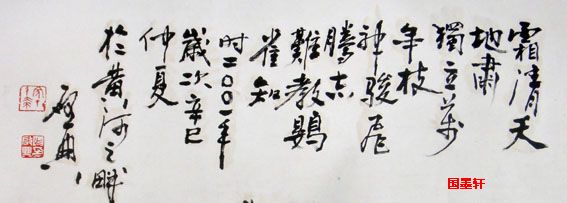 霜清天
地肃
獨立萬
年枝
神骏飛
騰志
難教鷃
雀知
时二〇〇一年
歲次辛巳
仲夏
於黄河之畔
国墨轩